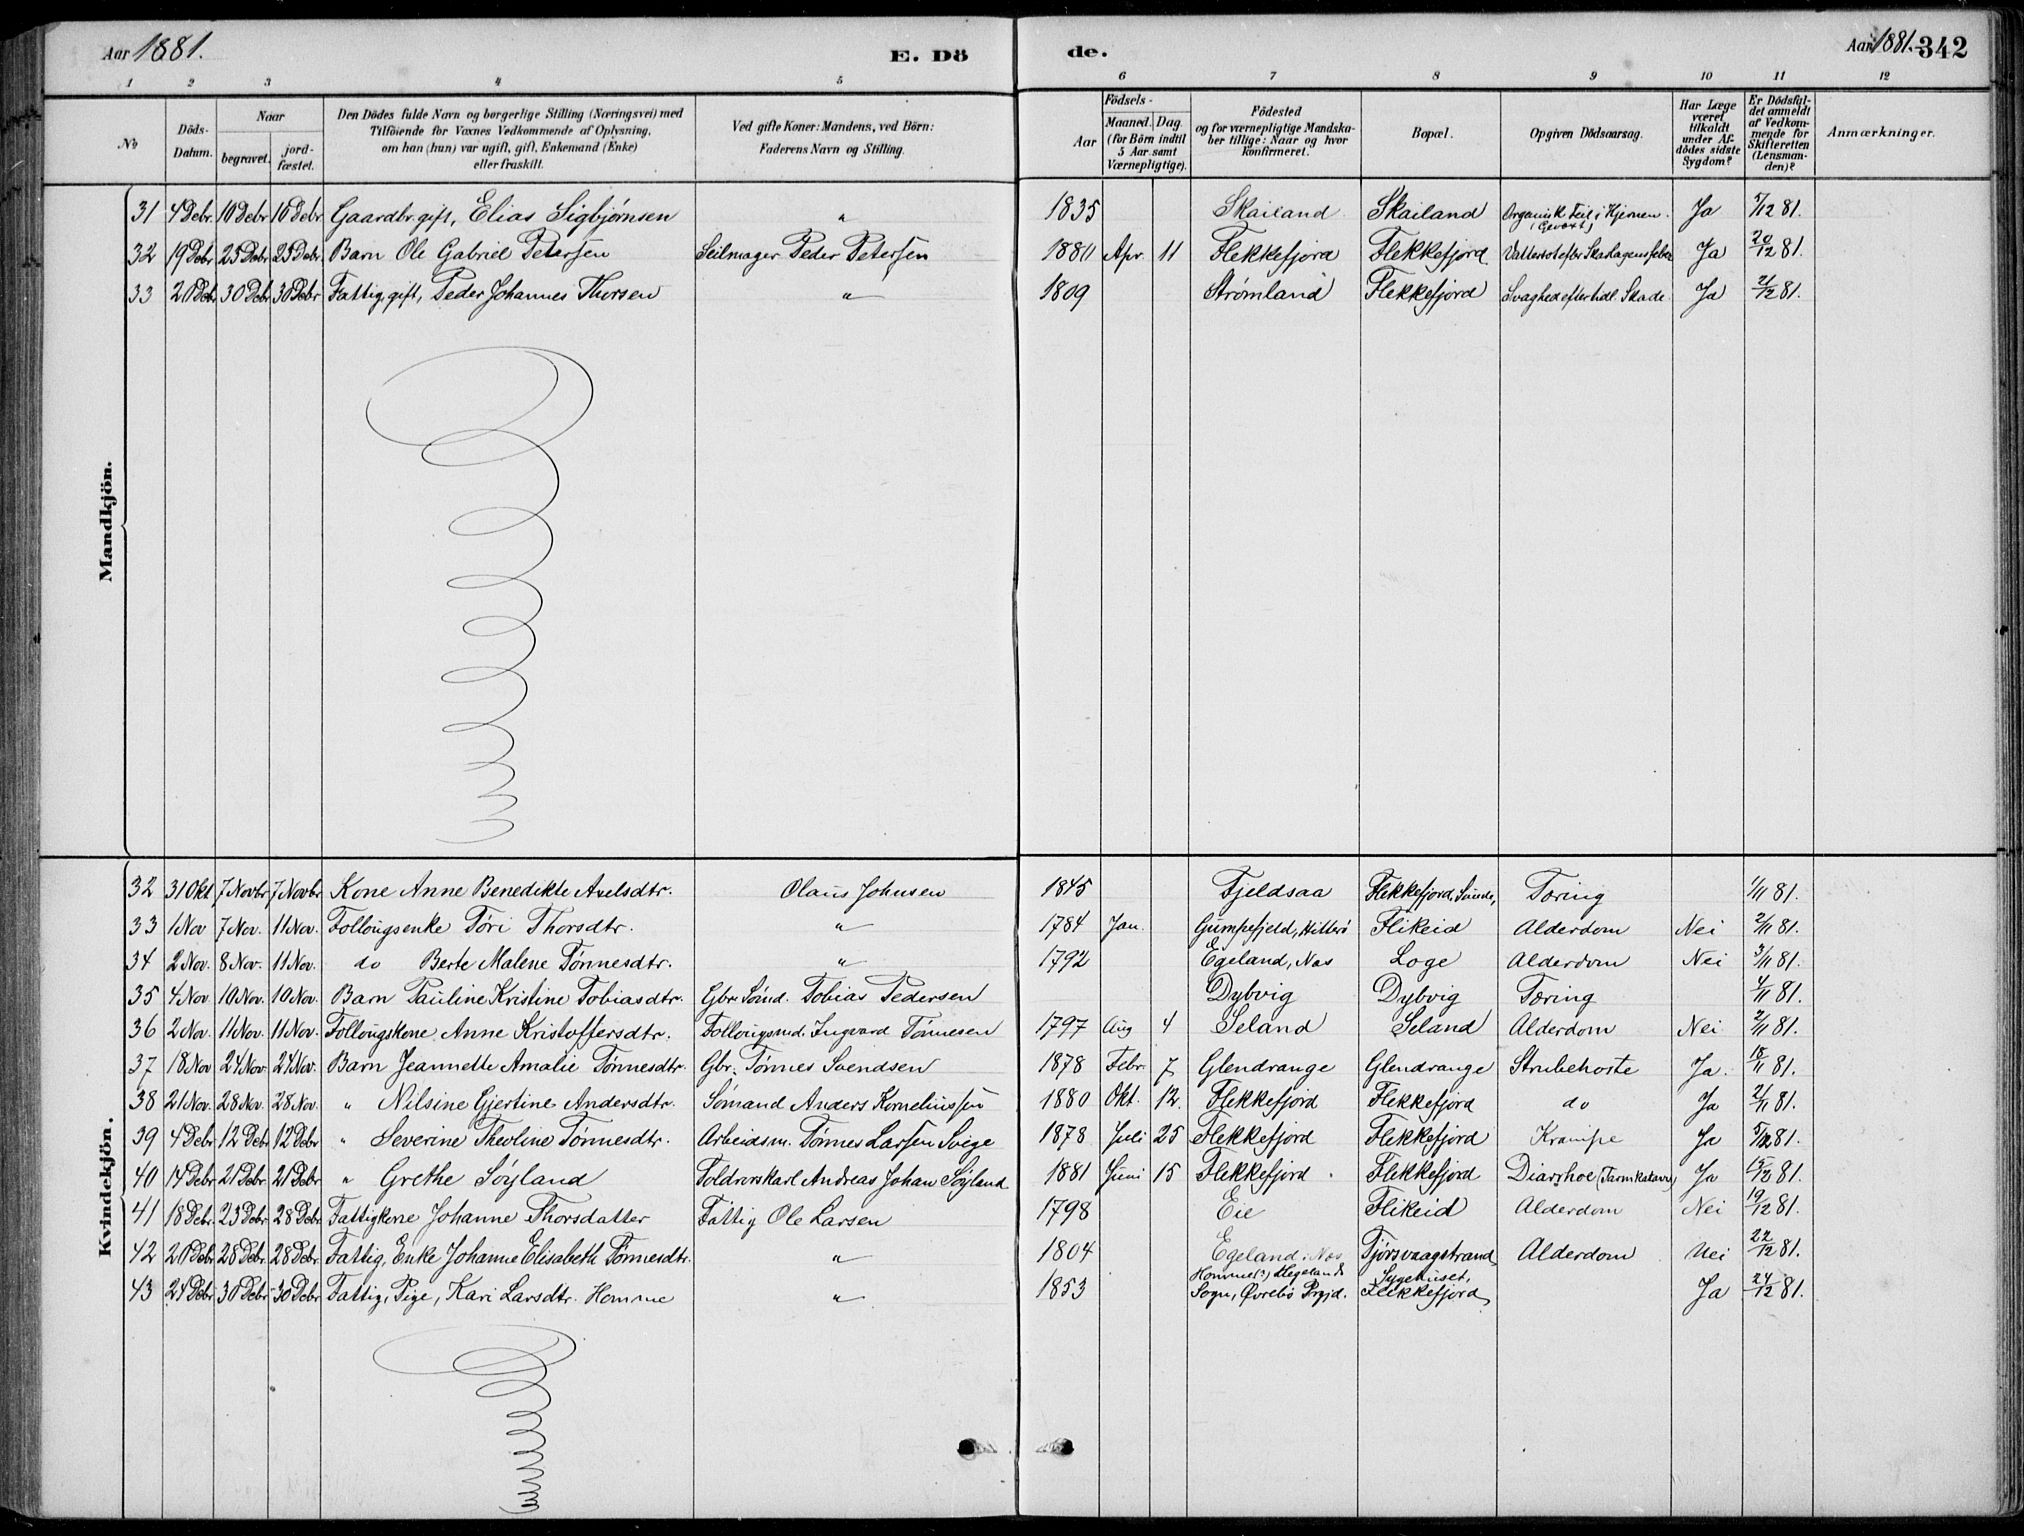 Aar 1881. E. Dö de. Aar 1881. 342
1 2 3 4 5 6 7 8 9 10 11 12
No
Döds-Datum.
Naar
begravet.
jord-fæstet.
Den Dödes fulde Navn og borgerlige Stilling (Næringsvei) med
Tilföiende for Voxnes Vedkommende af Oplysning,
om han (hun) var ugift, gift, Enkemand (Enke)
eller fraskilt.
Ved gifte Koner: Mandens, ved Börn:
Faderens Navn og Stilling.
Födsels-
Aar
Maaned. Dag.
(for Börn indtil
5 Aar samt
Værnepligtige).
Födested
og for værnepligtige Mandska-
ber tillige: Naar og hvor
konfirmeret.
Bopæl.
Opgiven Dödsaarsag.
Har Læge
været
tilkaldt
under Af-
dödes sidste
Sygdom?
Er Dödsfal-
det anmeldt
af Vedkom-
mende for
Skifteretten
(Lensman-
den)?
Anmærkninger.
Mandkjön.
31 4 Debr 10 Debr 10 Debr Gaardbr. gift, Elias Sigbjørnsen " 1835 Skailand Skailand Organisk Feil i Hjernen. Ja 5/12 81.
32 19 Debr 25 Debr 25 Debr Barn Ole Gabriel Petersen Seilmager Peder Petersen 1880 Apr. 11 Flekkefjord Flekkefjord Vattersot efter Skarlagensfeber Ja 20/12 81.
33 20 Debr 30 Debr 30 Debr Fattig, gift, Peder Johannes Thorsen " 1809 Strømland Flekkefjord Svaghed efter lidt Skade. Ja 21/12 81.
Kvindekjön.
32 31 Okt 7 Novbr 7 Novbr Kone Anne Benedikte Axelsdtr. Olaus Johnsen 1845 Fjeldsaa Flekkefjord, Sunde, Tæring 1/11 81.
33 1 Nov 7 Nov. 11 Nov. Follougsenke Tøri Thorsdtr. " 1784 Jan. Gumpefjeld, Hitterø Flikeid Alderdom Nei 2/11 81.
34 2 Nov. 8 Nov. 11 Nov. do Berte Malene Tønnesdtr. " 1792 Egeland, Nas Loge Alderdom Nei 3/11 81.
35 4 Nov. 10 Nov. 10 Nov. Barn Pauline Kristine Tobiasdtr. Gbr. Sømd. Tobias Pedersen Dybvig Dybvig Tæring 4/11 81.
36 2 Nov. 11 Nov. 11 Nov. Follougskone, Anne Kristoffersdtr. Follougsmd. Ingvard Tønnesen 1797 Aug 4 Seland Seland Alderdom Nei 2/11 81.
37 18 Nov 24 Nov. 24 Nov. Barn Jeannette Amalie Tønnesdtr. Gbr. Tønnes Svendsen 1878 Febr. 7 Glendrange Glendrange Strubehoste Ja. 18/11 81.
38 21 Nov. 28 Nov. 28 Nov. " Nilsine Gjertine Andersdtr. Sømand Anders Korneliussen 1880 Okt. 12. Flekkefjord Flekkefjord do Ja 21/11 81.
39 4 Debr. 12 Debr 12 Debr " Severine Theoline Tønnesdtr. Arbeidsm. Tønnes Larsen Svege 1878 Juli 25 Flekkefjord Flekkefjord Krampe Ja 5/12 81.
40 14 Debr 21 Debr 21 Debr " Grethe Søyland Toldroerskarl Andreas Johan Søyland 1881 Juni 15 Flekkefjord Flekkefjord Diarrhoe (Tarmkatarrh) Ja 15/12 81.
41 18 Debr. 23 Debr. 28 Debr. Fattigkone Johanne Thorsdatter Fattig Ole Larsen 1798 Eie Flikeid Alderdom Nei 19/12 81.
42 20 Debr. 28 Debr. 28 Debr. Fattig, Enke Johanne Elisabeth Tønnesdtr. " 1804 Egeland, Nas Tjørsvaagstrand Alderdom Nei 22/12 81.
43 24 Debr 30 Debr 30 Debr Fattig, Pige, Kari Larsdtr. Homme " 1853 Homme(?) Hegelands Sogn, Øvrebø Prgjd. Sygehuset, Flekkefjord, Ja 24/12 81.